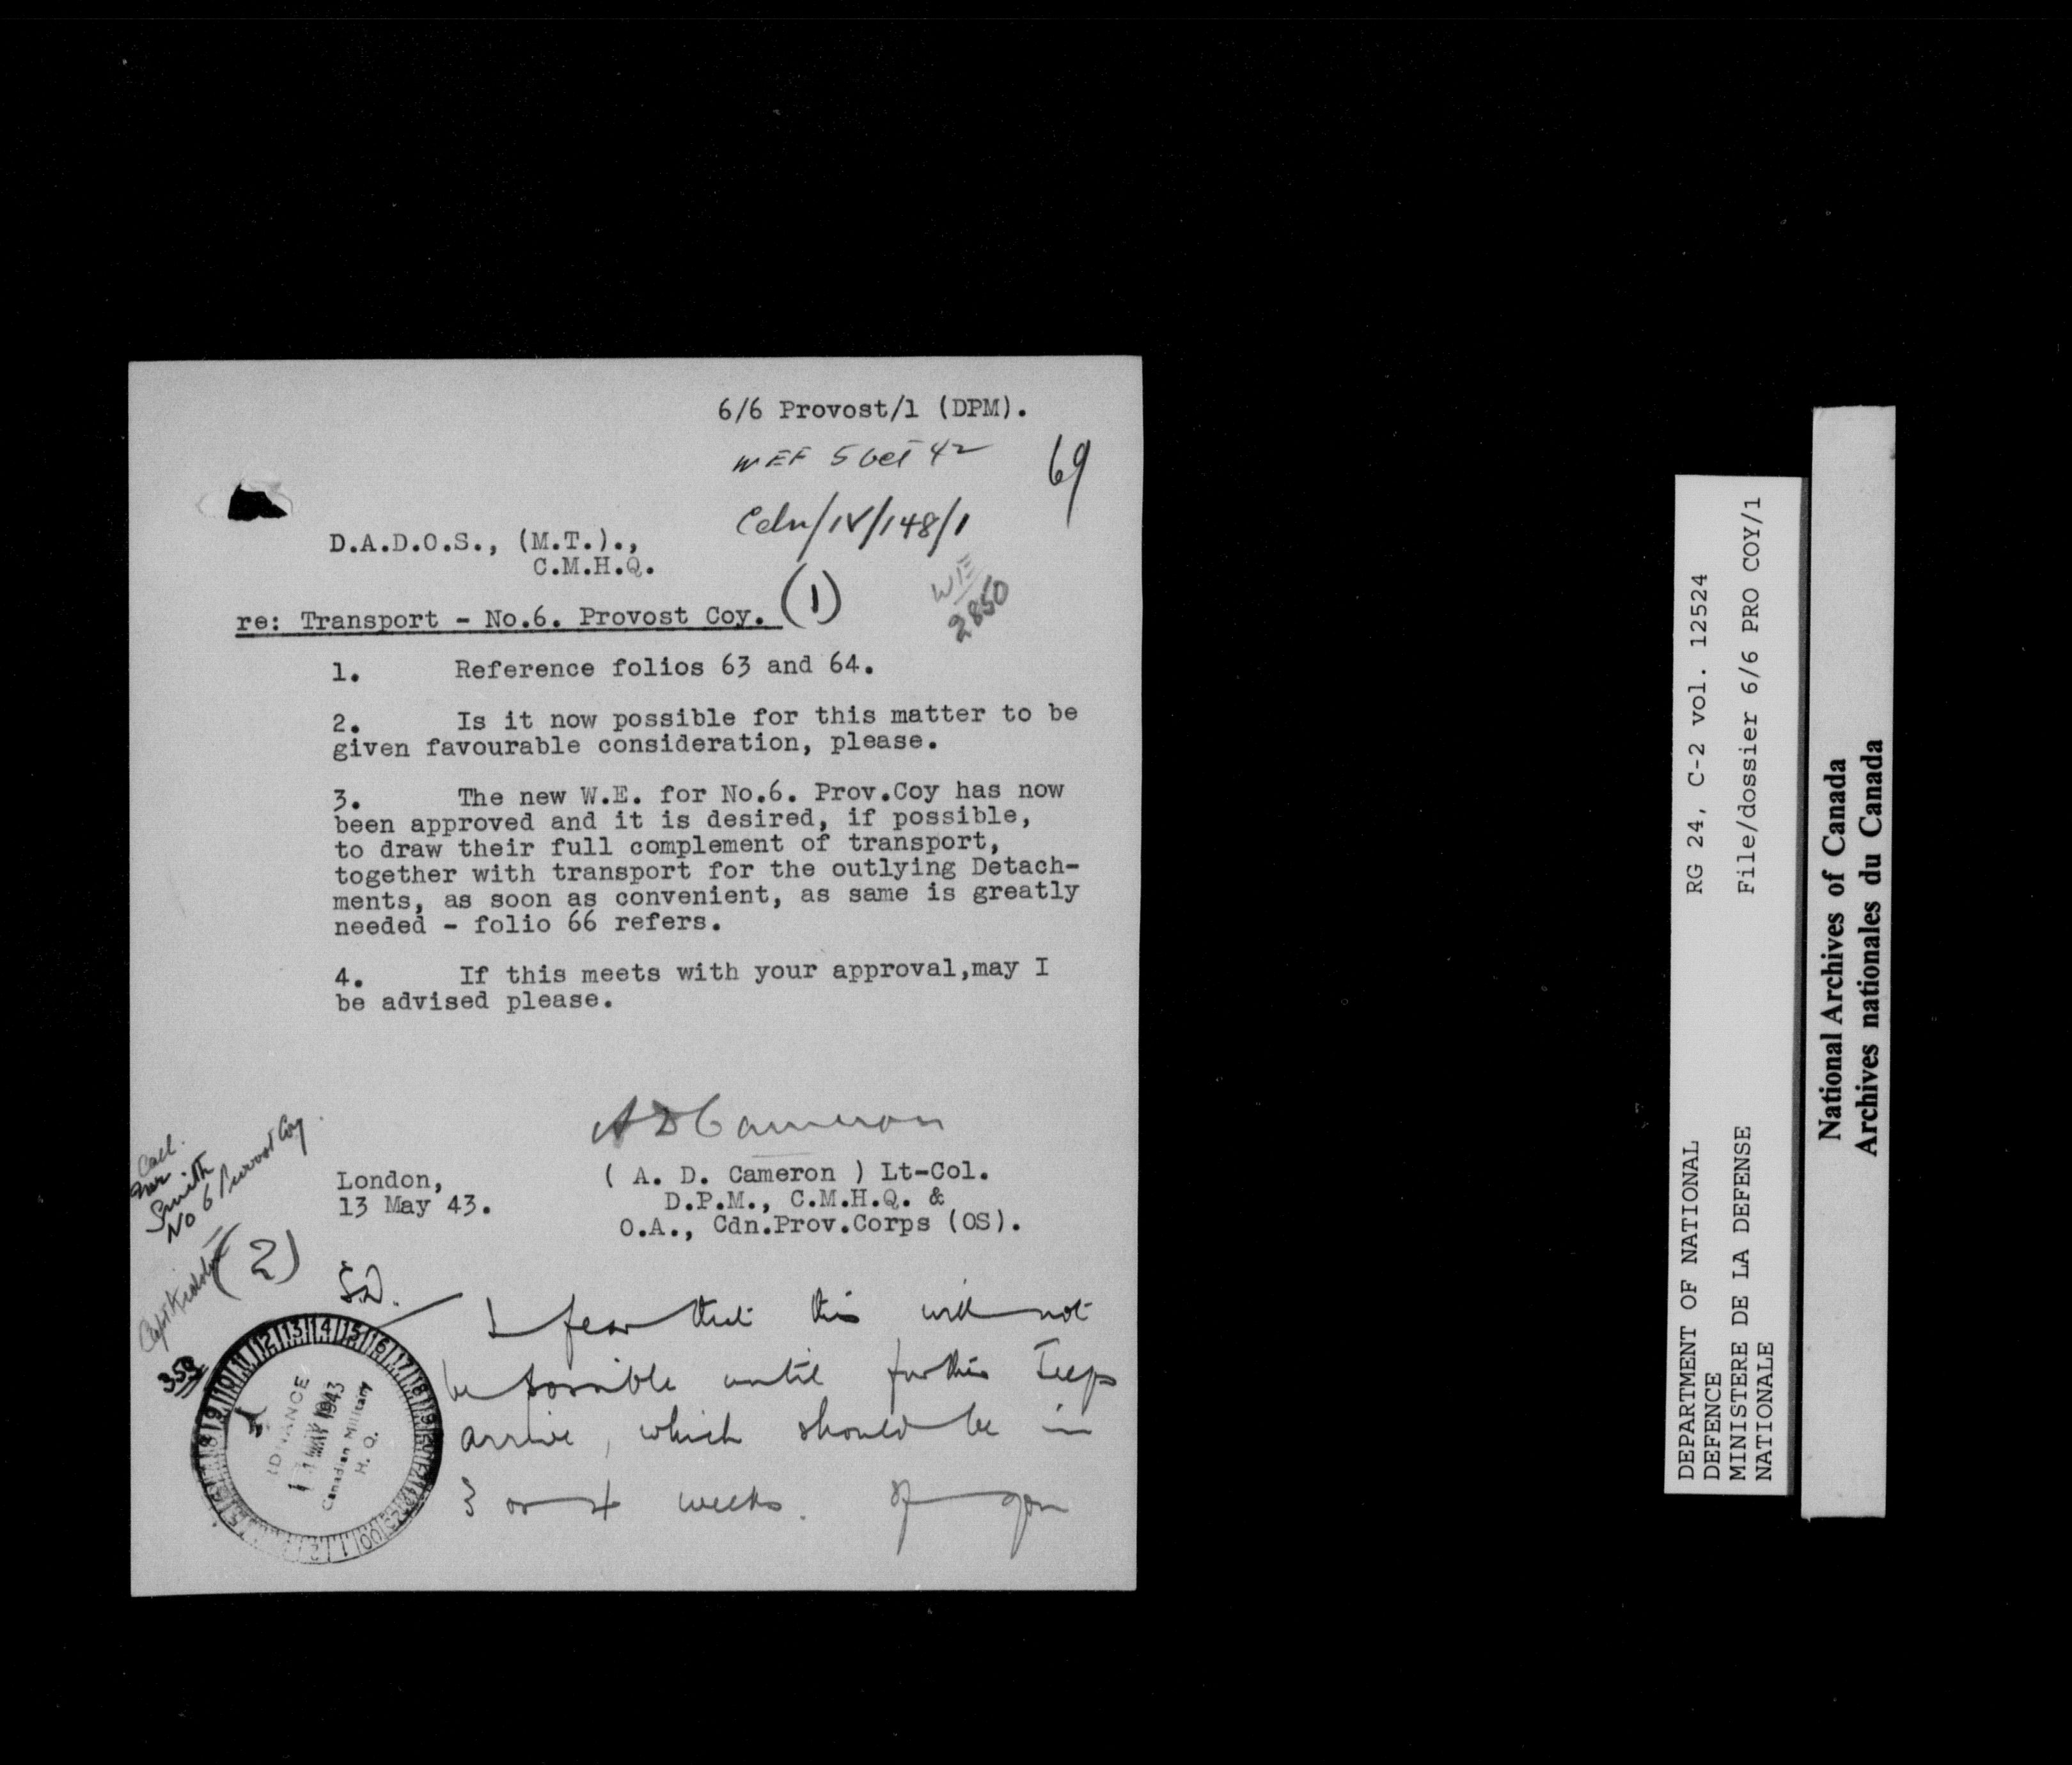 6/6 Provost/1 (DPM).
WEF 5 Oct 42
69
Cdn/IV/148/1
D.A.D.O.S., (M.T.).,
C.M.H.Q.
WE
2850
re: Transport - No.6. Provost Coy. (1)
1. Reference folios 63 and 64.
2. Is it now possible for this matter to be
given favourable consideration, please.
3. The new W.E. for No.6. Prov.Coy has now
been approved and it is desired, if possible,
to draw their full complement of transport,
together with transport for the outlying Detach-
ments, as soon as convenient, as same is greatly
needed - folio 66 refers.
4. If this meets with your approval,may I
be advised please.
A D Cameron
( A. D. Cameron ) Lt-Col.
D.P.M., C.M.H.Q. &
O.A., Cdn.Prov.Corps (OS).
London,
13 May 43.
Call
Smith
No 6 Provost Coy
Capt
(2)
359
S.D.
I fear that this will not
be possible until further Jeeps
arrive, which should be in
3 or 4 weeks. If you
MAY 1943
Canadian Military
H. Q.
RG 24, C-2 vol. 12524
File/dossier 6/6 PRO COY/1
DEPARTMENT OF NATIONAL
DEFENCE
MINISTERE DE LA DEFENSE
NATIONALE
National Archives of Canada
Archives nationales du Canada